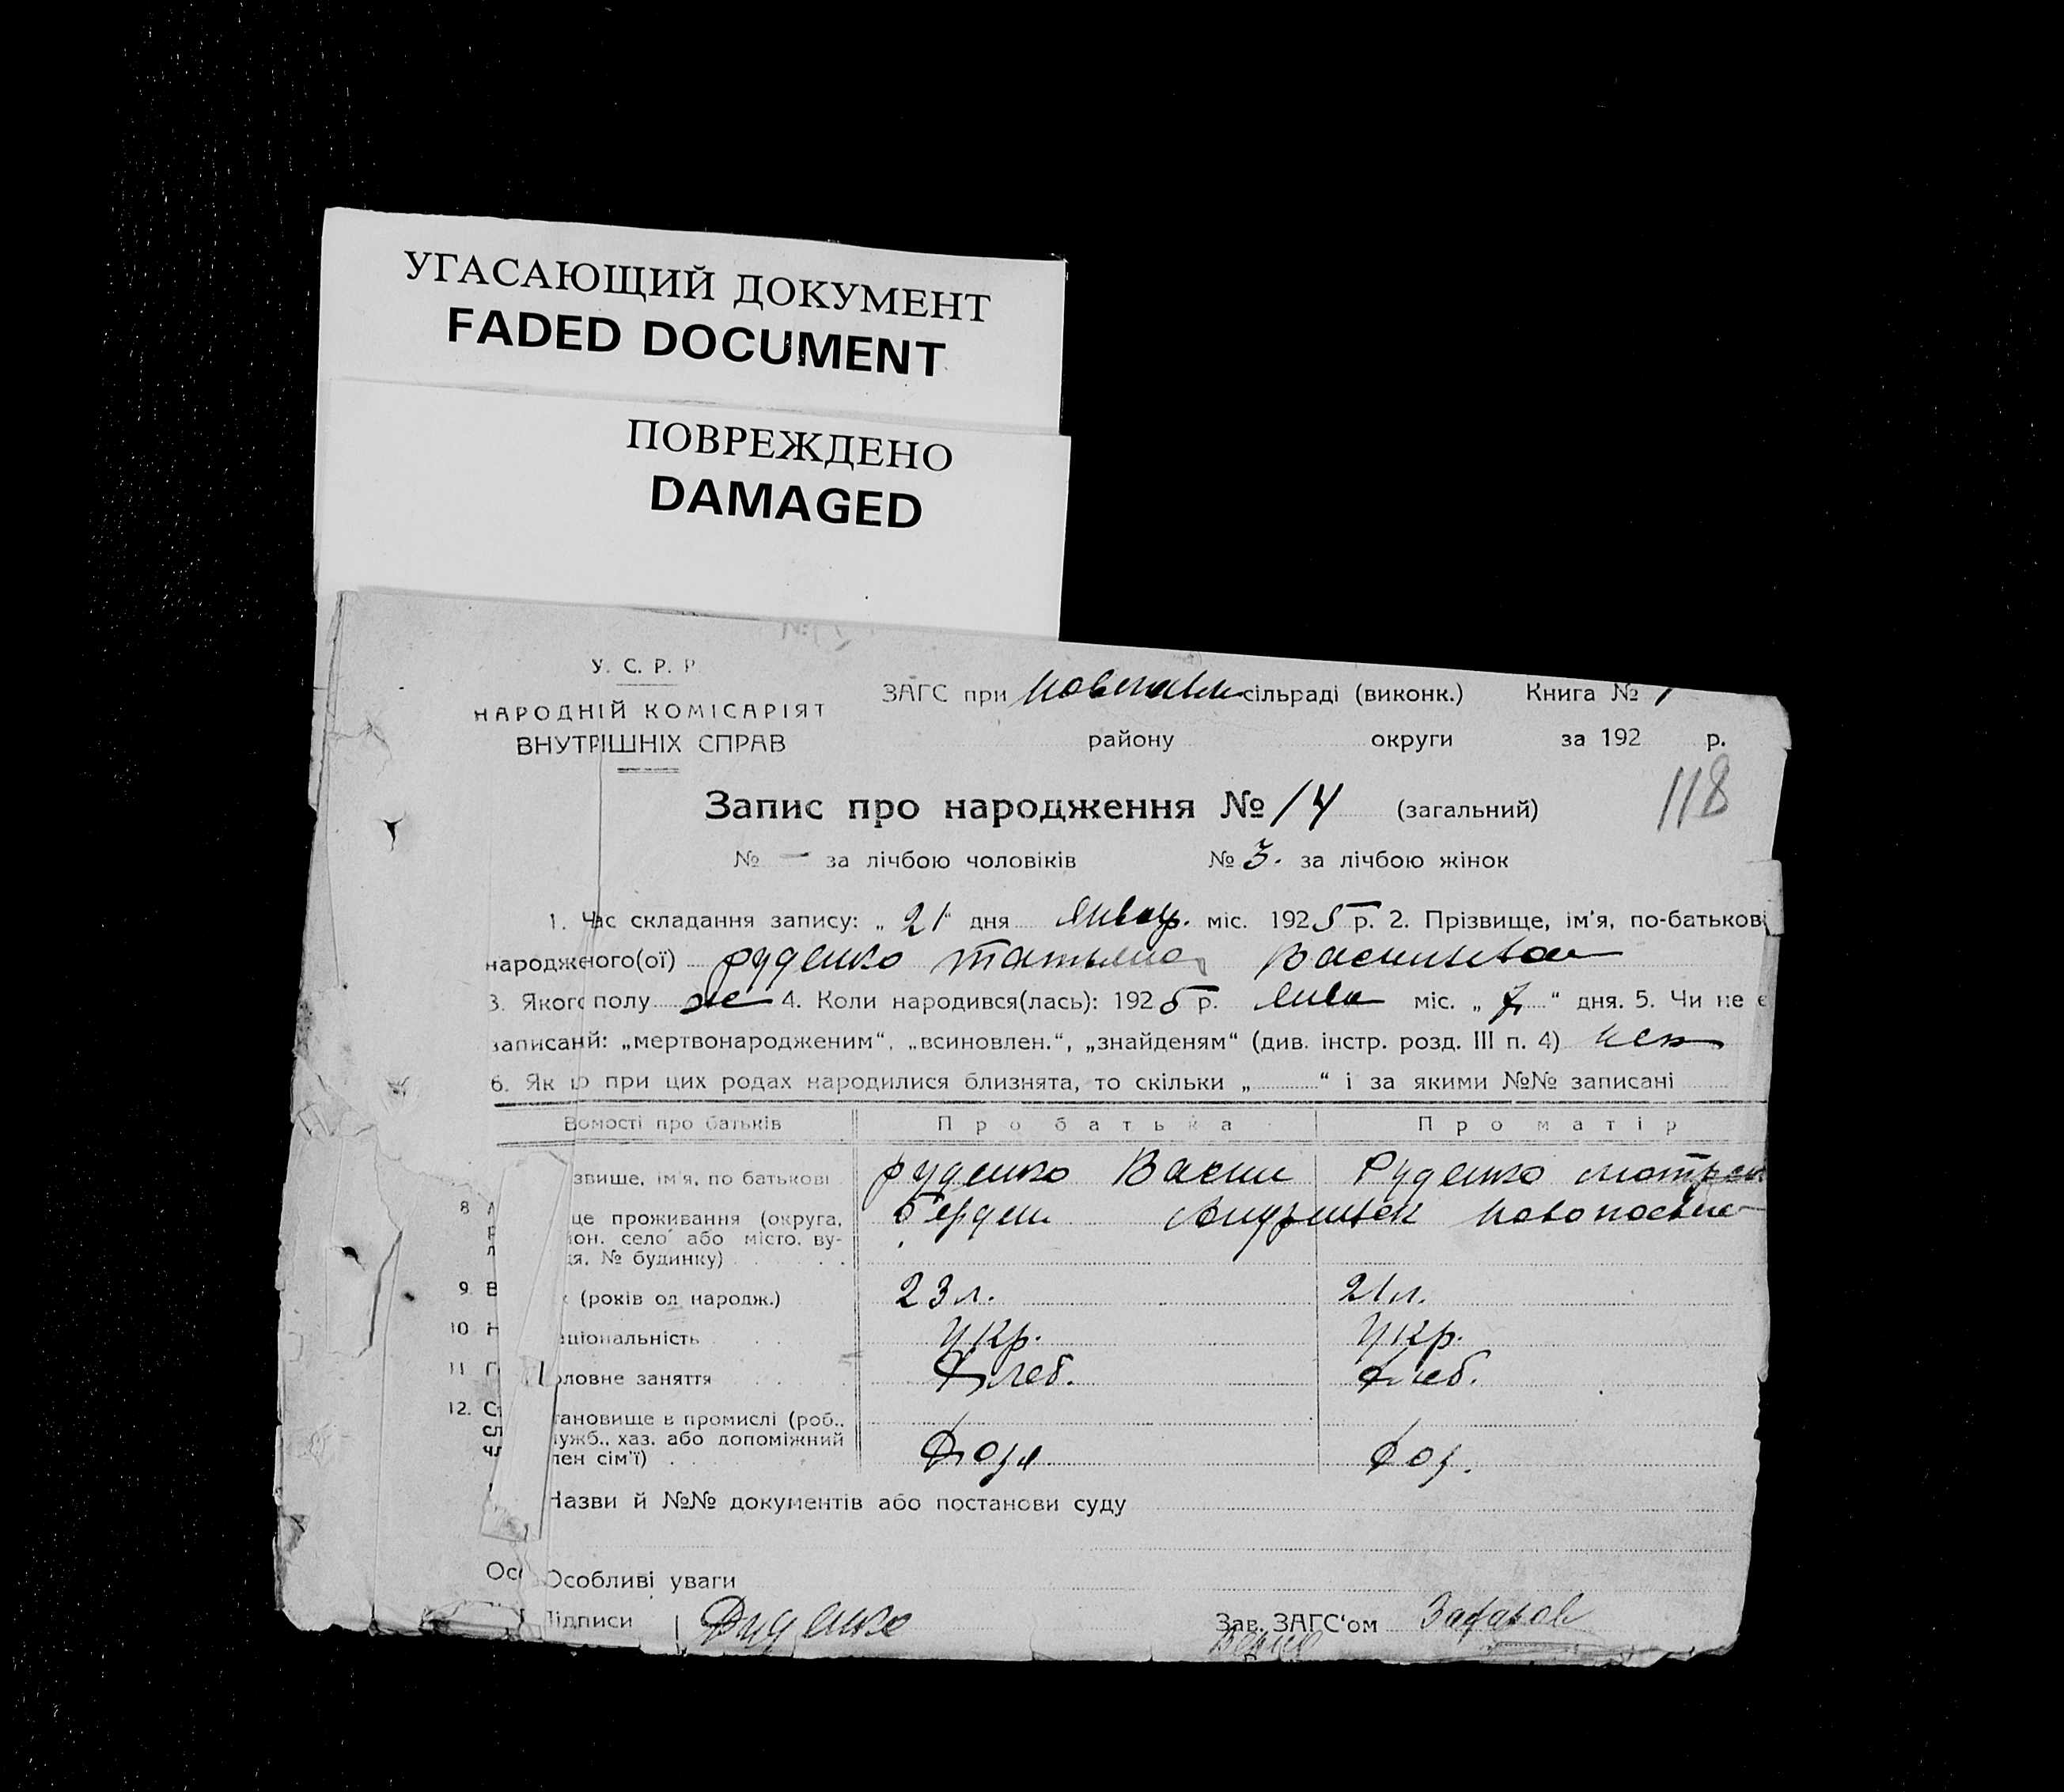 УГАСАЮЩИЙ ДОКУМЕНТ
FADED DOCUMENT
ПОВРЕЖДЕНО
DAMAGED
У. С. Р. Р
НАРОДНІЙ КОМІСАРІЯТ
ВНУТРІШНІХ СПРАВ
ЗАГС при сільраді (виконк.) Книга № 1
району округи за 192 р.
118
Запис про народження № 14 (загальний)
№ — за лічбою чоловіків № 3. за лічбою жінок
1. Час складання запису: „ 21 " дня Январ. міс. 1925 р. 2. Прізвище, ім'я, по-батькові
народженого(ої) Руденко Татьяна
3. Якого полу же 4. Коли народився(лась): 1925 р. Янва міс. „ 7 " дня. 5. Чи не є
записаний: „мертвонародженим", „всиновлен.", „знайденям" (див. інстр. розд. III п. 4) нет
6. Як що при цих родах народилися близнята, то скільки „ " і за якими №№ записані
Вомості про батьків Про батька Про матір
звище, ім'я, по батькові Руденко Васили Руденко Мотрен
8 це проживання (округа, Бердян Андр Новопосвис
йон, село або місто, ву-
я, № будинку)
9. В (років од народж.) 23 л. 21 л.
10 Н аціональність Укр. Укр.
11 Г оловне заняття Хлеб. Хлеб.
12. Ст тановище в промислі (роб.,
сл ужб., хаз. або допоміжний
чл лен сім'ї) Хозя Хоз.
Назви й №№ документів або постанови суду
Осо Особливі уваги
Підписи Руденко Зав. ЗАГС'ом